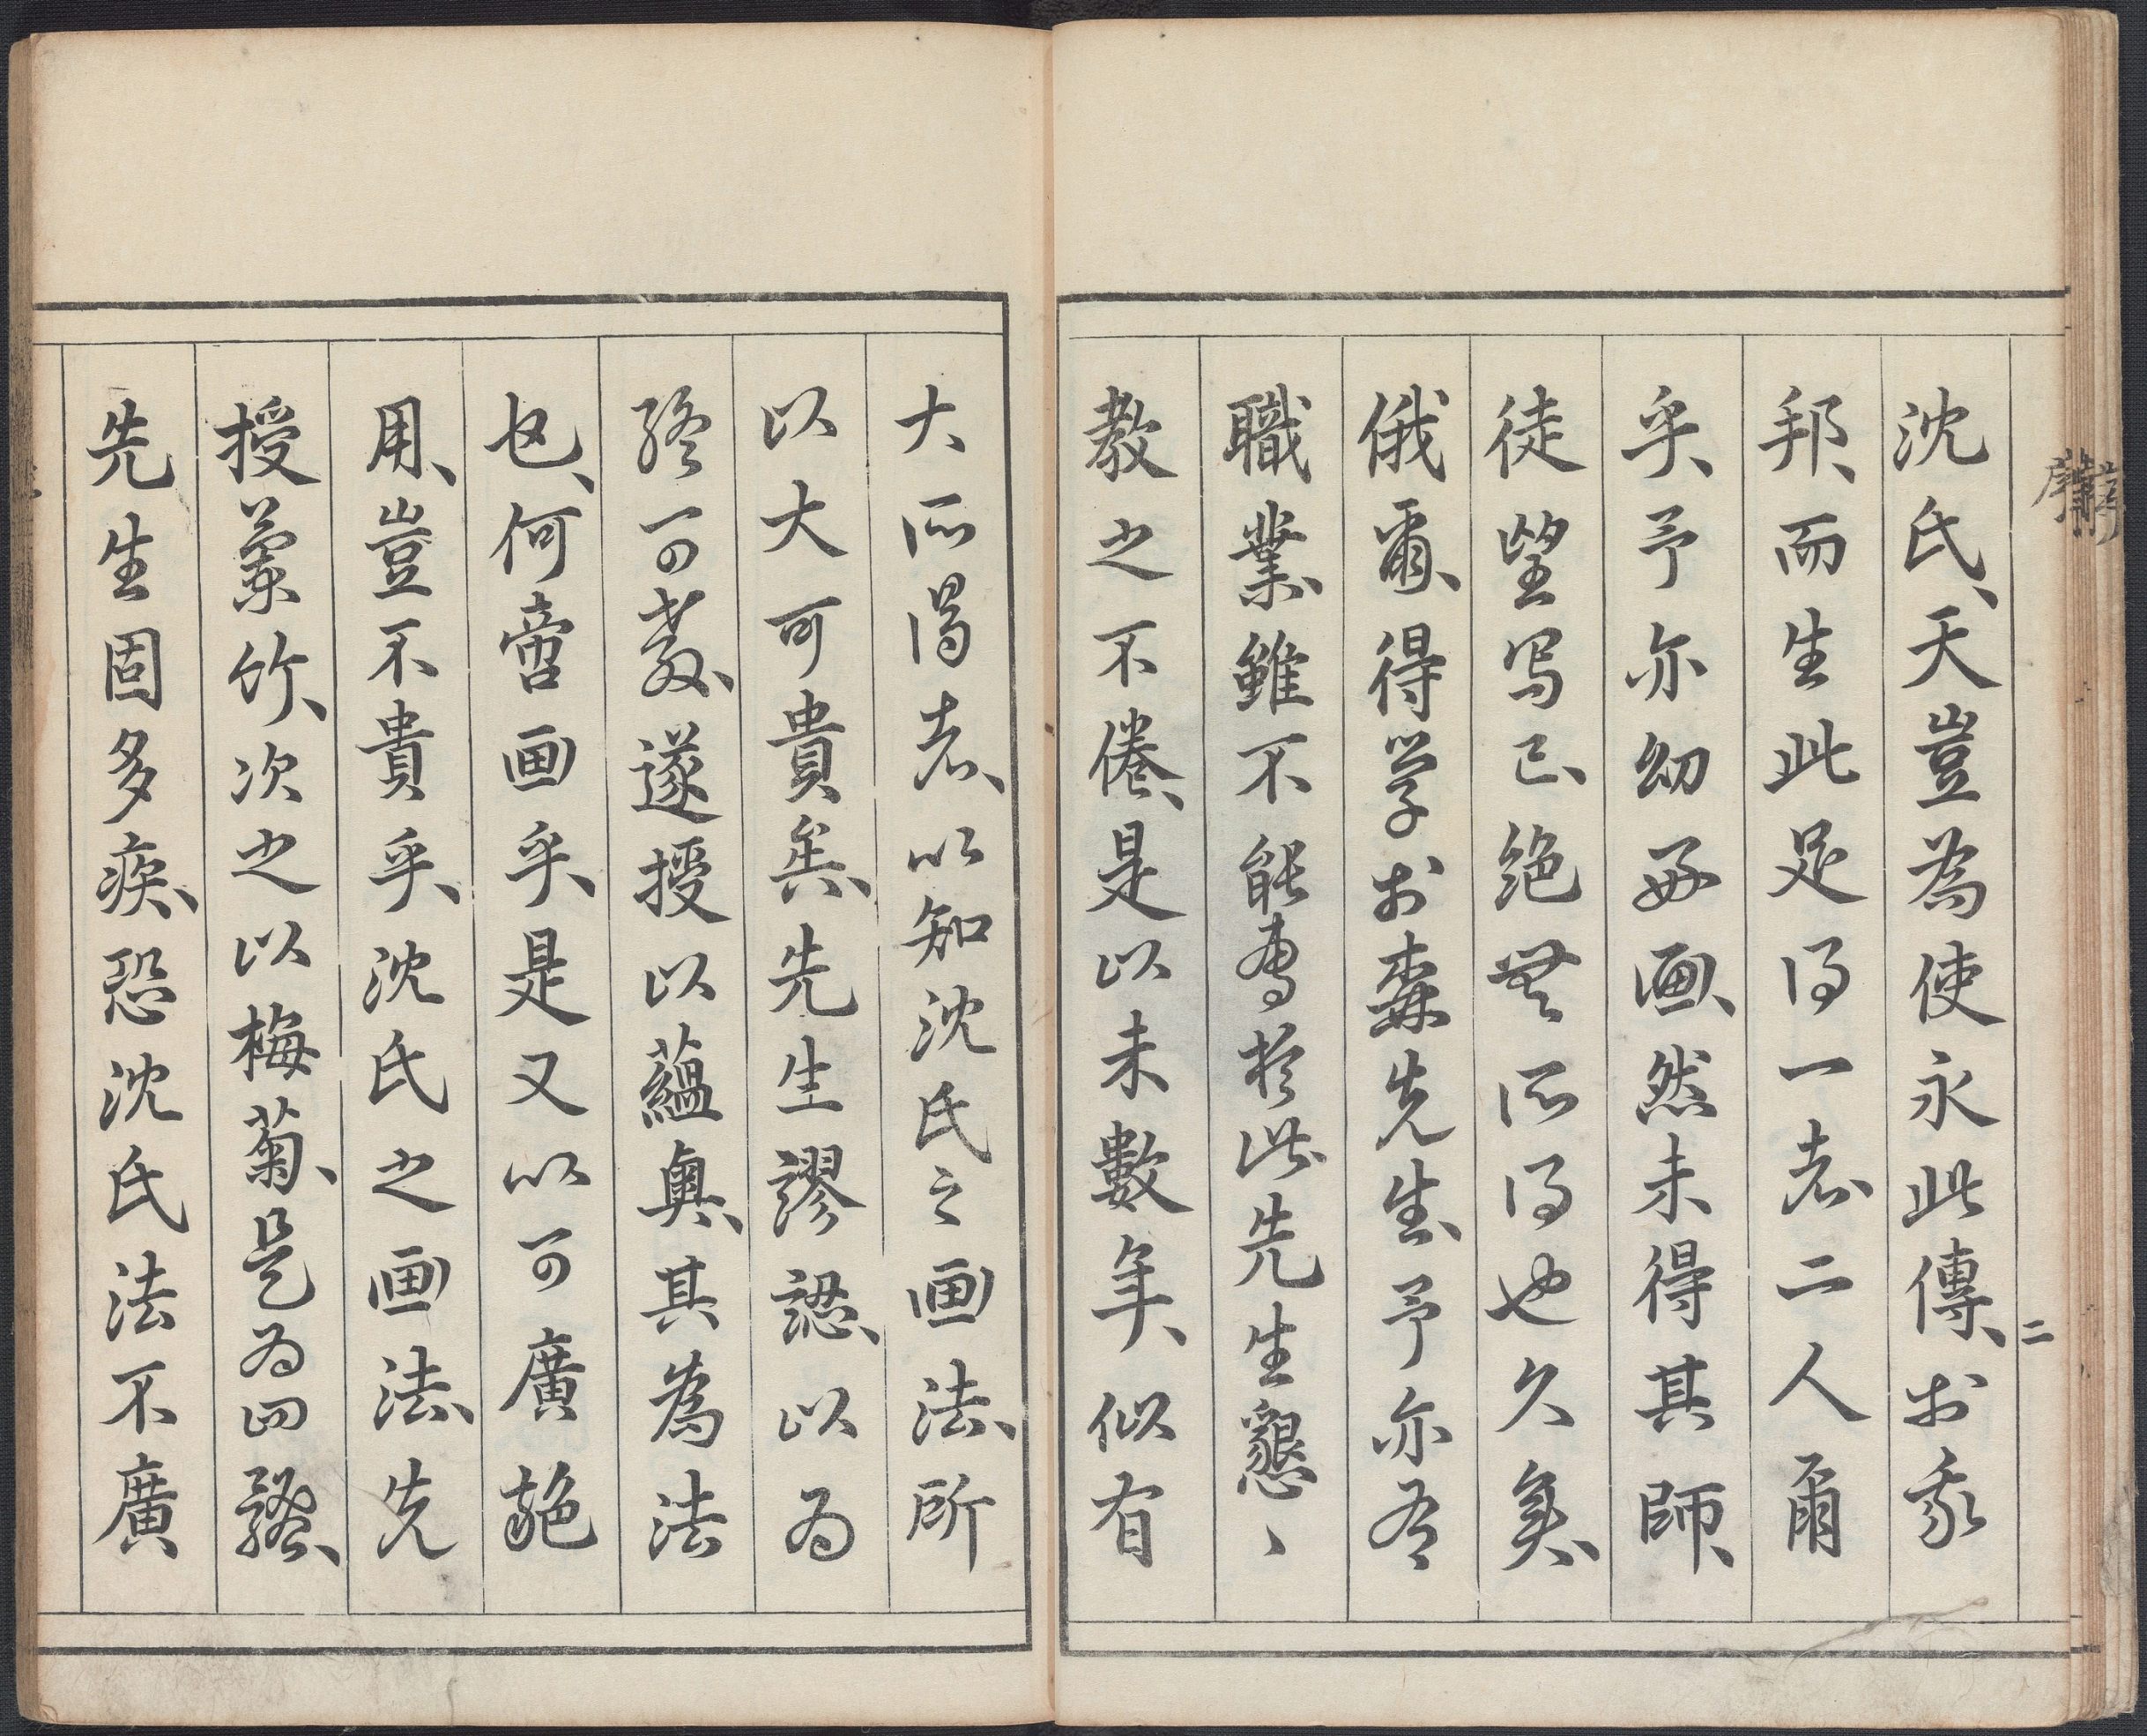 沈氏、天豈為使永此傳、於我
邦、而生此足得一者二人爾
乎、予亦幼好画、然未得其師、
徒望写已、絶無所得也久矣、
俄爾、得学於森先生、予亦有
職業、雖不能専於此、先生懇、
教之不倦、是以未數年、似有
大所得者、以知沈氏之画法、所
以大可貴矣、先生謬認、以為
終可教、遂授以蘊奥、其為法
也、何啻画乎、是又以可廣施
用、豈不貴乎、沈氏之画法、先
授蘭竹、次之以梅菊、是為四譜、
先生固多疾、恐沈氏法不廣
二